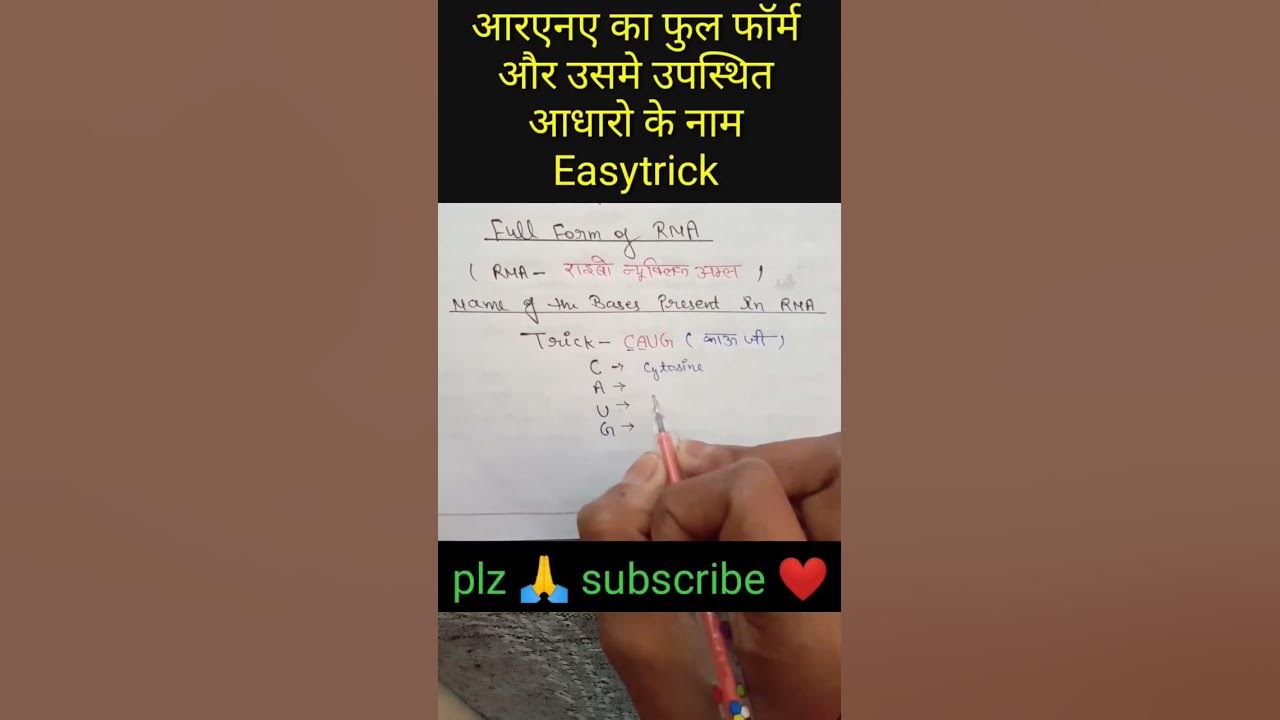 आरएनए का फुल फॉर्म
और उसमे उपस्थित
आधारो के नाम
Easytrick
Full Form of RNA
( RNA - राइबो न्यूक्लिक अम्ल )
Name of the Bases Present In RNA
Trick - CAUG ( काऊ जी )
C → Cytosine
A →
U →
G →
plz 🙏 subscribe ❤️